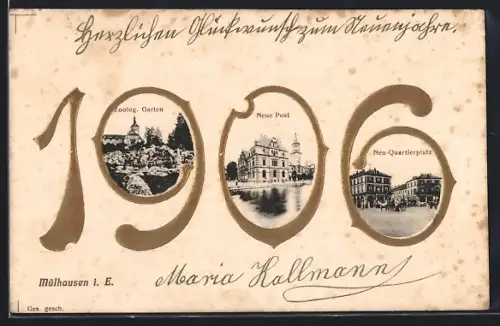 Herzlichen Glückwunsch zum Neuenjahre.
1906
Zoolog. Garten
Neue Post
Neu-Quartierplatz
Mülhausen i. E.
Maria Hallmann
Ges. gesch.